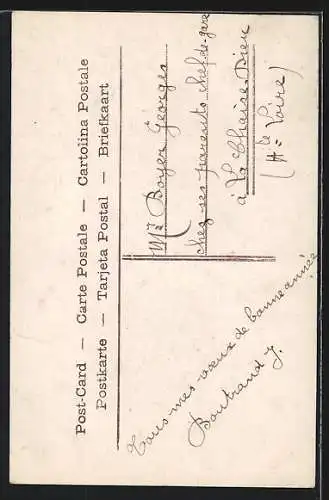 Post-Card — Carte Postale — Cartolina Postale
Postkarte — Tarjeta Postal — Briefkaart
Mr Boyer Georges
chez ses parents chef-de-gare
à La Chaise-Dieu
(Hte Loire)
Tous mes vœux de bonne année
Boutrand J.